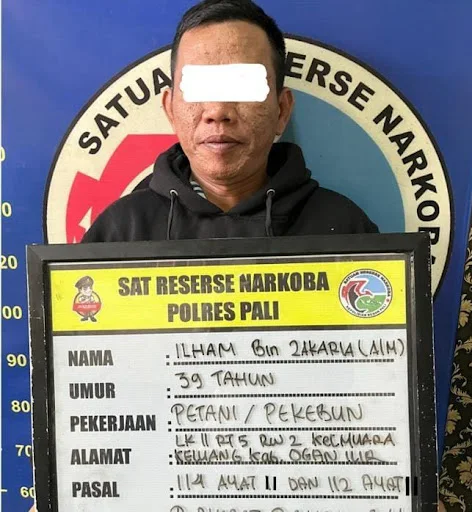 SATUAN RESERSE NARKOBA
SAT RESERSE NARKOBA
POLRES PALI
NAMA : ILHAM Bin ZAKARIA (ALM)
UMUR : 39 TAHUN
PEKERJAAN : PETANI / PEKEBUN
LK II RT 5 RW 2 KEL MUARA
ALAMAT : KELINGI KAB. OGAN ILIR
PASAL : 114 AYAT II DAN 112 AYAT II
20
10
00
90
80
70
60